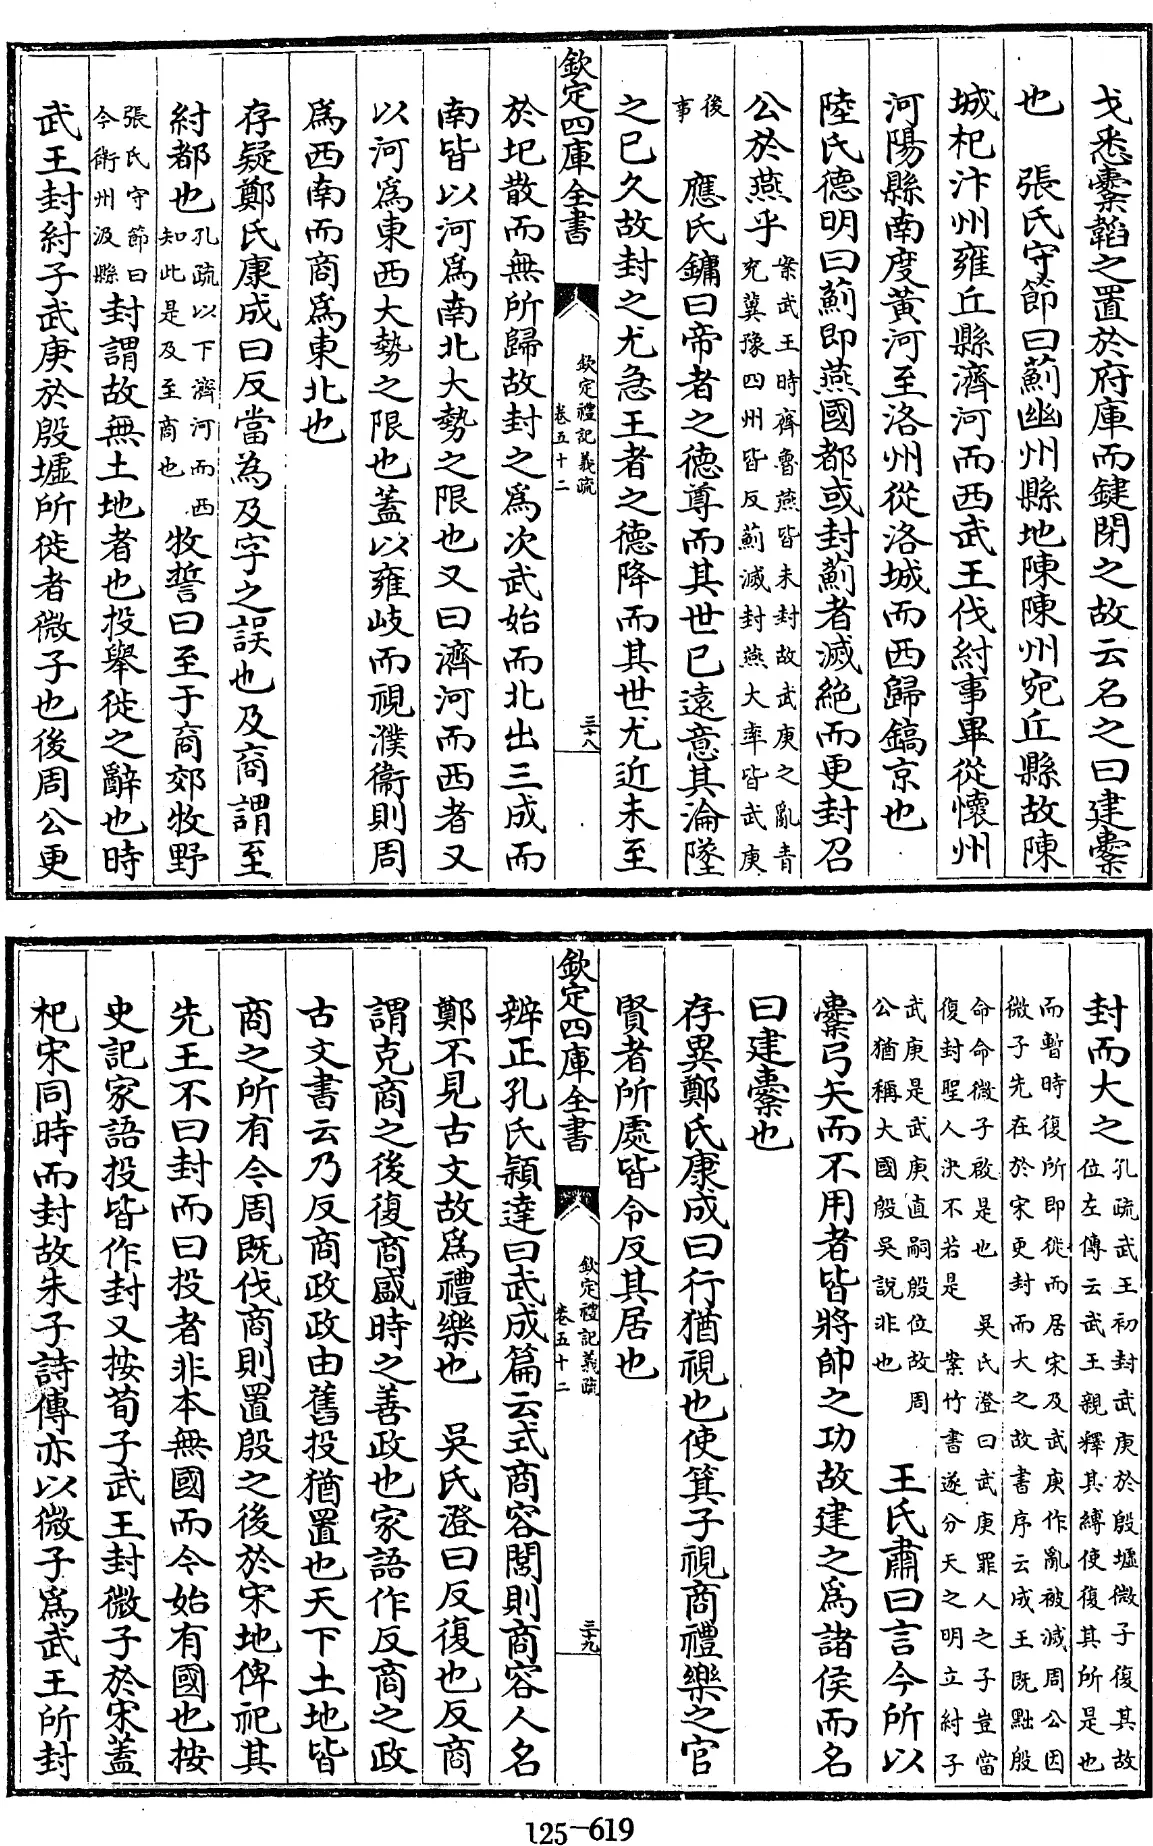 戈悉櫜韜之置於府庫而鍵閉之故云名之曰建櫜
也　張氏守節曰薊幽州縣地陳陳州宛丘縣故陳
城杞汴州雍丘縣濟河而西武王伐紂事畢從懷州
河陽縣南度黃河至洛州從洛城而西歸鎬京也
陸氏德明曰薊即燕國都或封薊者滅絶而更封召
公於燕乎案武王時齊魯燕皆未封故武庚之亂青
兖冀豫四州皆反薊滅封燕大率皆武庚
後
事　應氏鏞曰帝者之德尊而其世已遠意其淪墜
之已久故封之尤急王者之德降而其世尤近未至
欽定四庫全書
欽定禮記義疏
卷五十二
三十八
於圮散而無所歸故封之爲次武始而北出三成而
南皆以河爲南北大勢之限也又曰濟河而西者又
以河爲東西大勢之限也蓋以雍岐而視濮衞則周
爲西南而商爲東北也
存疑鄭氏康成曰反當為及字之誤也及商謂至
紂都也孔疏以下濟河而西
知此是及至商也牧誓曰至于商郊牧野
張氏守節曰
今衞州汲縣封謂故無土地者也投舉徙之辭也時
武王封紂子武庚於殷墟所徙者微子也後周公更
封而大之孔疏武王初封武庚於殷墟微子復其故
位左傳云武王親釋其縛使復其所是也
而暫時復所即徙而居宋及武庚作亂被滅周公因
微子先在於宋更封而大之故書序云成王既黜殷
命命微子啟是也　吳氏澄曰武庚罪人之子豈當
復封聖人決不若是　案竹書遂分天之明立紂子
武庚是武庚直嗣殷位故周
公猶稱大國殷吳說非也　王氏肅曰言今所以
櫜弓矢而不用者皆將帥之功故建之爲諸侯而名
曰建櫜也
存異鄭氏康成曰行猶視也使箕子視商禮樂之官
賢者所處皆令反其居也
欽定四庫全書
欽定禮記義疏
卷五十二
三十九
辨正孔氏穎達曰武成篇云式商容閭則商容人名
鄭不見古文故爲禮樂也　吳氏澄曰反復也反商
謂克商之後復商盛時之善政也家語作反商之政
古文書云乃反商政政由舊投猶置也天下土地皆
商之所有今周既伐商則置殷之後於宋地俾祀其
先王不曰封而曰投者非本無國而今始有國也按
史記家語投皆作封又按荀子武王封微子於宋蓋
杞宋同時而封故朱子詩傳亦以微子爲武王所封
125-619